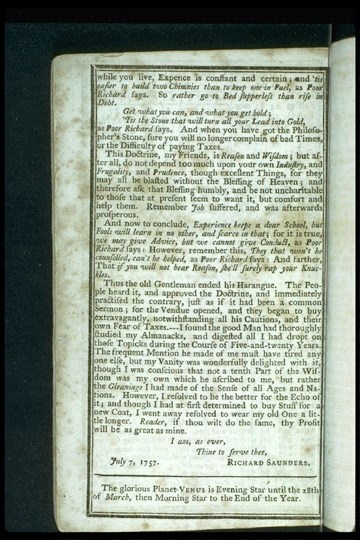 while you live, Expence is constant and certain; and 'tis
easier to build two Chimnies than to keep one in Fuel, as Poor
Richard says. So rather go to Bed supperless than rise in
Debt.
Get what you can, and what you get hold;
'Tis the Stone that will turn all your Lead into Gold,
as Poor Richard says. And when you have got the Philoso-
pher's Stone, sure you will no longer complain of bad Times,
or the Difficulty of paying Taxes.
This Doctrine, my Friends, is Reason and Wisdom; but af-
ter all, do not depend too much upon your own Industry, and
Frugality, and Prudence, though excellent Things, for they
may all be blasted without the Blessing of Heaven; and
therefore ask that Blessing humbly, and be not uncharitable
to those that at present seem to want it, but comfort and
help them. Remember Job suffered, and was afterwards
prosperous.
And now to conclude, Experience keeps a dear School, but
Fools will learn in no other, and scarce in that; for it is true,
we may give Advice, but we cannot give Conduct, as Poor
Richard says: However, remember this, They that won't be
counselled, can't be helped, as Poor Richard says: And farther,
That if you will not hear Reason, she'll surely rap your Knuc-
kles.
Thus the old Gentleman ended his Harangue. The Peo-
ple heard it, and approved the Doctrine, and immediately
practised the contrary, just as if it had been a common
Sermon; for the Vendue opened, and they began to buy
extravagantly, notwithstanding all his Cautions, and their
own Fear of Taxes.---I found the good Man had thoroughly
studied my Almanacks, and digested all I had dropt on
those Topicks during the Course of Five-and-twenty Years.
The frequent Mention he made of me must have tired any
one else, but my Vanity was wonderfully delighted with it,
though I was conscious that not a tenth Part of the Wis-
dom was my own which he ascribed to me, but rather
the Gleanings I had made of the Sense of all Ages and Na-
tions. However, I resolved to be the better for the Echo of
it; and though I had at first determined to buy Stuff for a
new Coat, I went away resolved to wear my old One a lit-
tle longer. Reader, if thou wilt do the same, thy Profit
will be as great as mine.
I am, as ever,
Thine to serve thee,
July 7, 1757. RICHARD SAUNDERS.
The glorious Planet VENUS is Evening Star until the 28th
of March, then Morning Star to the End of the Year.